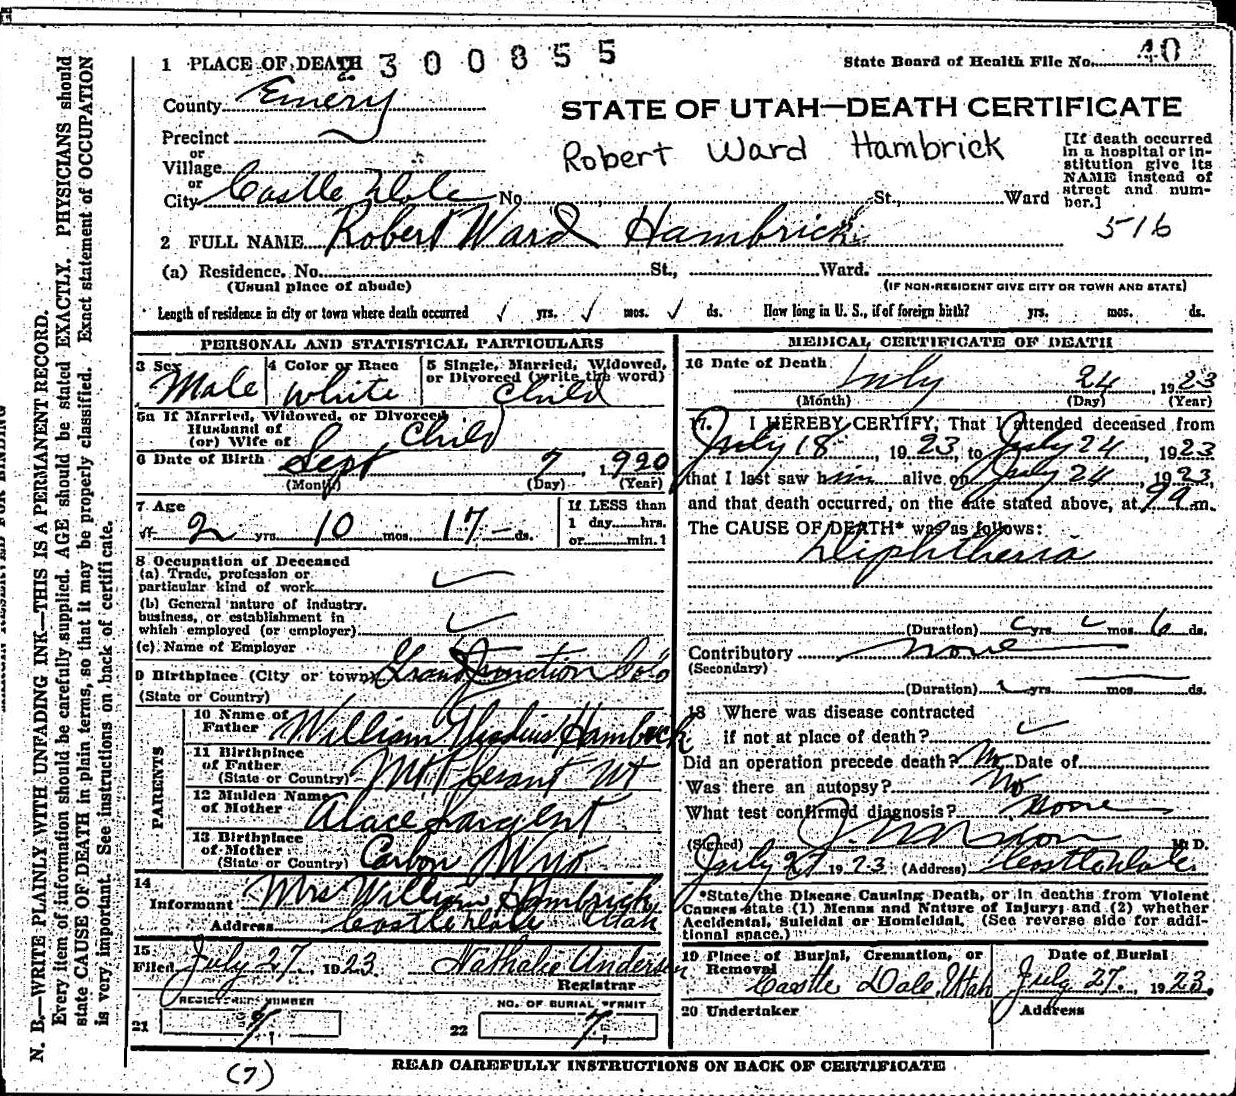 1 PLACE OF DEATH 2300855
State Board of Health File No. 40
County Emery
STATE OF UTAH—DEATH CERTIFICATE
Precinct
or
Village
or
City Castle Dale No. St., Ward
Robert Ward Hambrick
[If death occurred
in a hospital or in-
stitution give its
NAME instead of
street and num-
ber.]
516
2 FULL NAME Robert Ward Hambrick
(a) Residence. No. St., Ward.
(Usual place of abode) (IF NON-RESIDENT GIVE CITY OR TOWN AND STATE)
Length of residence in city or town where death occurred ✓ yrs. ✓ mos. ✓ ds. How long in U. S., if of foreign birth? yrs. mos. ds.
PERSONAL AND STATISTICAL PARTICULARS
3 Sex Male
4 Color or Race White
5 Single, Married, Widowed,
or Divorced (write the word)
Child
5a If Married, Widowed, or Divorced
Husband of
(or) Wife of Child
6 Date of Birth Sept 7, 1920
(Month) (Day) (Year)
7 Age
2 yrs. 10 mos. 17 ds.
If LESS than
1 day hrs.
or min.
8 Occupation of Deceased
(a) Trade, profession or
particular kind of work ✓
(b) General nature of industry,
business, or establishment in
which employed (or employer) ✓
(c) Name of Employer
9 Birthplace (City or town) Grand Junction Colo
(State or Country)
PARENTS
10 Name of
Father William Hambrick
11 Birthplace
of Father
(State or Country) Mt Plesant Ut
12 Maiden Name
of Mother Alace Sargent
13 Birthplace
of Mother
(State or Country) Carbon Wyo
14
Informant Mrs William Hambrick
Address Castle Dale Utah
15
Filed July 27, 1923 Nathalie Anderson
Registrar
REGISTRARS NUMBER NO. OF BURIAL PERMIT
21 7 22 7
(7)
MEDICAL CERTIFICATE OF DEATH
16 Date of Death July 24, 1923
(Month) (Day) (Year)
17. I HEREBY CERTIFY, That I attended deceased from
July 18, 1923, to July 24, 1923
that I last saw him alive on July 24, 1923,
and that death occurred, on the date stated above, at 9 a m.
The CAUSE OF DEATH* was as follows:
Diphtheria
(Duration) yrs. mos. 6 ds.
Contributory none
(Secondary)
(Duration) yrs. mos. ds.
18 Where was disease contracted
if not at place of death? ✓
Did an operation precede death? No Date of
Was there an autopsy? No
What test confirmed diagnosis? None
(Signed) M. D.
July 27 1923 (Address) Castle Dale
*State the Disease Causing Death, or in deaths from Violent
Causes state (1) Means and Nature of Injury; and (2) whether
Accidental, Suicidal or Homicidal. (See reverse side for addi-
tional space.)
19 Place of Burial, Cremation, or
Removal
Castle Dale, Utah
Date of Burial
July 27, 1923.
20 Undertaker
Address
READ CAREFULLY INSTRUCTIONS ON BACK OF CERTIFICATE
N. B.—WRITE PLAINLY WITH UNFADING INK—THIS IS A PERMANENT RECORD.
Every item of information should be carefully supplied. AGE should be stated EXACTLY. PHYSICIANS should
state CAUSE OF DEATH in plain terms, so that it may be properly classified. Exact statement of OCCUPATION
is very important. See instructions on back of certificate.
RESERVED FOR BINDING